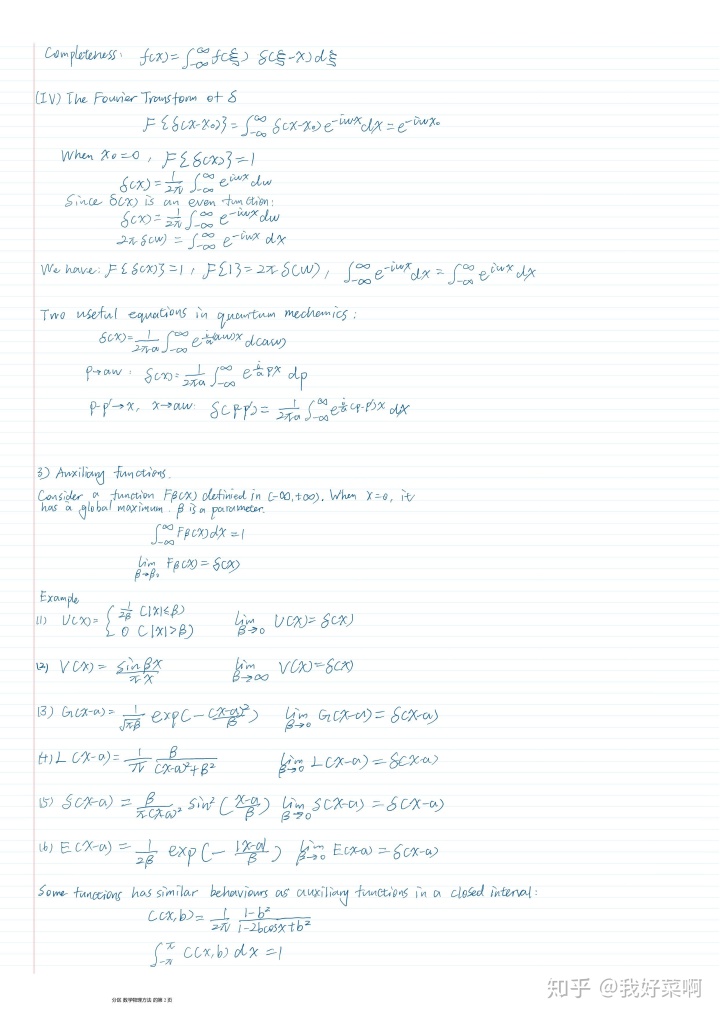 Completeness: f(x)=∫_{-∞}^{∞} f(ξ) δ(ξ-x)dξ
(IV) The Fourier Transform of δ
F{δ(x-x₀)}=∫_{-∞}^{∞} δ(x-x₀)e^{-iωx}dx=e^{-iωx₀}
When x₀=0, F{δ(x)}=1
δ(x)=1/2π ∫_{-∞}^{∞} e^{iωx}dω
Since δ(x) is an even function:
δ(x)=1/2π ∫_{-∞}^{∞} e^{-iωx}dω
2πδ(ω) = ∫_{-∞}^{∞} e^{-iωx} dx
We have: F{δ(x)}=1, F{1}=2πδ(ω), ∫_{-∞}^{∞} e^{-iωx}dx = ∫_{-∞}^{∞} e^{iωx}dx
Two useful equations in quantum mechanics:
δ(x)=1/2πa ∫_{-∞}^{∞} e^{i/a(aω)x} d(aω)
p→aω: δ(x)=1/2πa ∫_{-∞}^{∞} e^{i/a px} dp
p-p'→x, x→aω: δ(p-p')= 1/2πa ∫_{-∞}^{∞} e^{i/a(p-p')x} dx
3) Auxiliary functions.
Consider a function Fβ(x) defined in (-∞,+∞). When x=0, it
has a global maximum. β is a parameter.
∫_{-∞}^{∞} Fβ(x)dx=1
lim_{β→β₀} Fβ(x)=δ(x)
Example
(1) U(x)= { 1/2β (|x|≤β) 0 (|x|>β) lim_{β→0} U(x)=δ(x)
(2) V(x)= sinβx/πx lim_{β→∞} V(x)=δ(x)
(3) G(x-a)= 1/√πβ exp(-(x-a)²/β) lim_{β→0} G(x-a)=δ(x-a)
(4) L(x-a)= 1/π β/(x-a)²+β² lim_{β→0} L(x-a)=δ(x-a)
(5) S(x-a)= β/π(x-a)² sin²(x-a/β) lim_{β→0} S(x-a)=δ(x-a)
(6) E(x-a)= 1/2β exp(-|x-a|/β) lim_{β→0} E(x-a)=δ(x-a)
Some functions has similar behaviours as auxiliary functions in a closed interval:
C(x,b)= 1/2π 1-b²/1-2bcosx+b²
∫_{-π}^{π} C(x,b)dx=1
分区 数学物理方法 的第 2 页
知乎 @我好菜啊